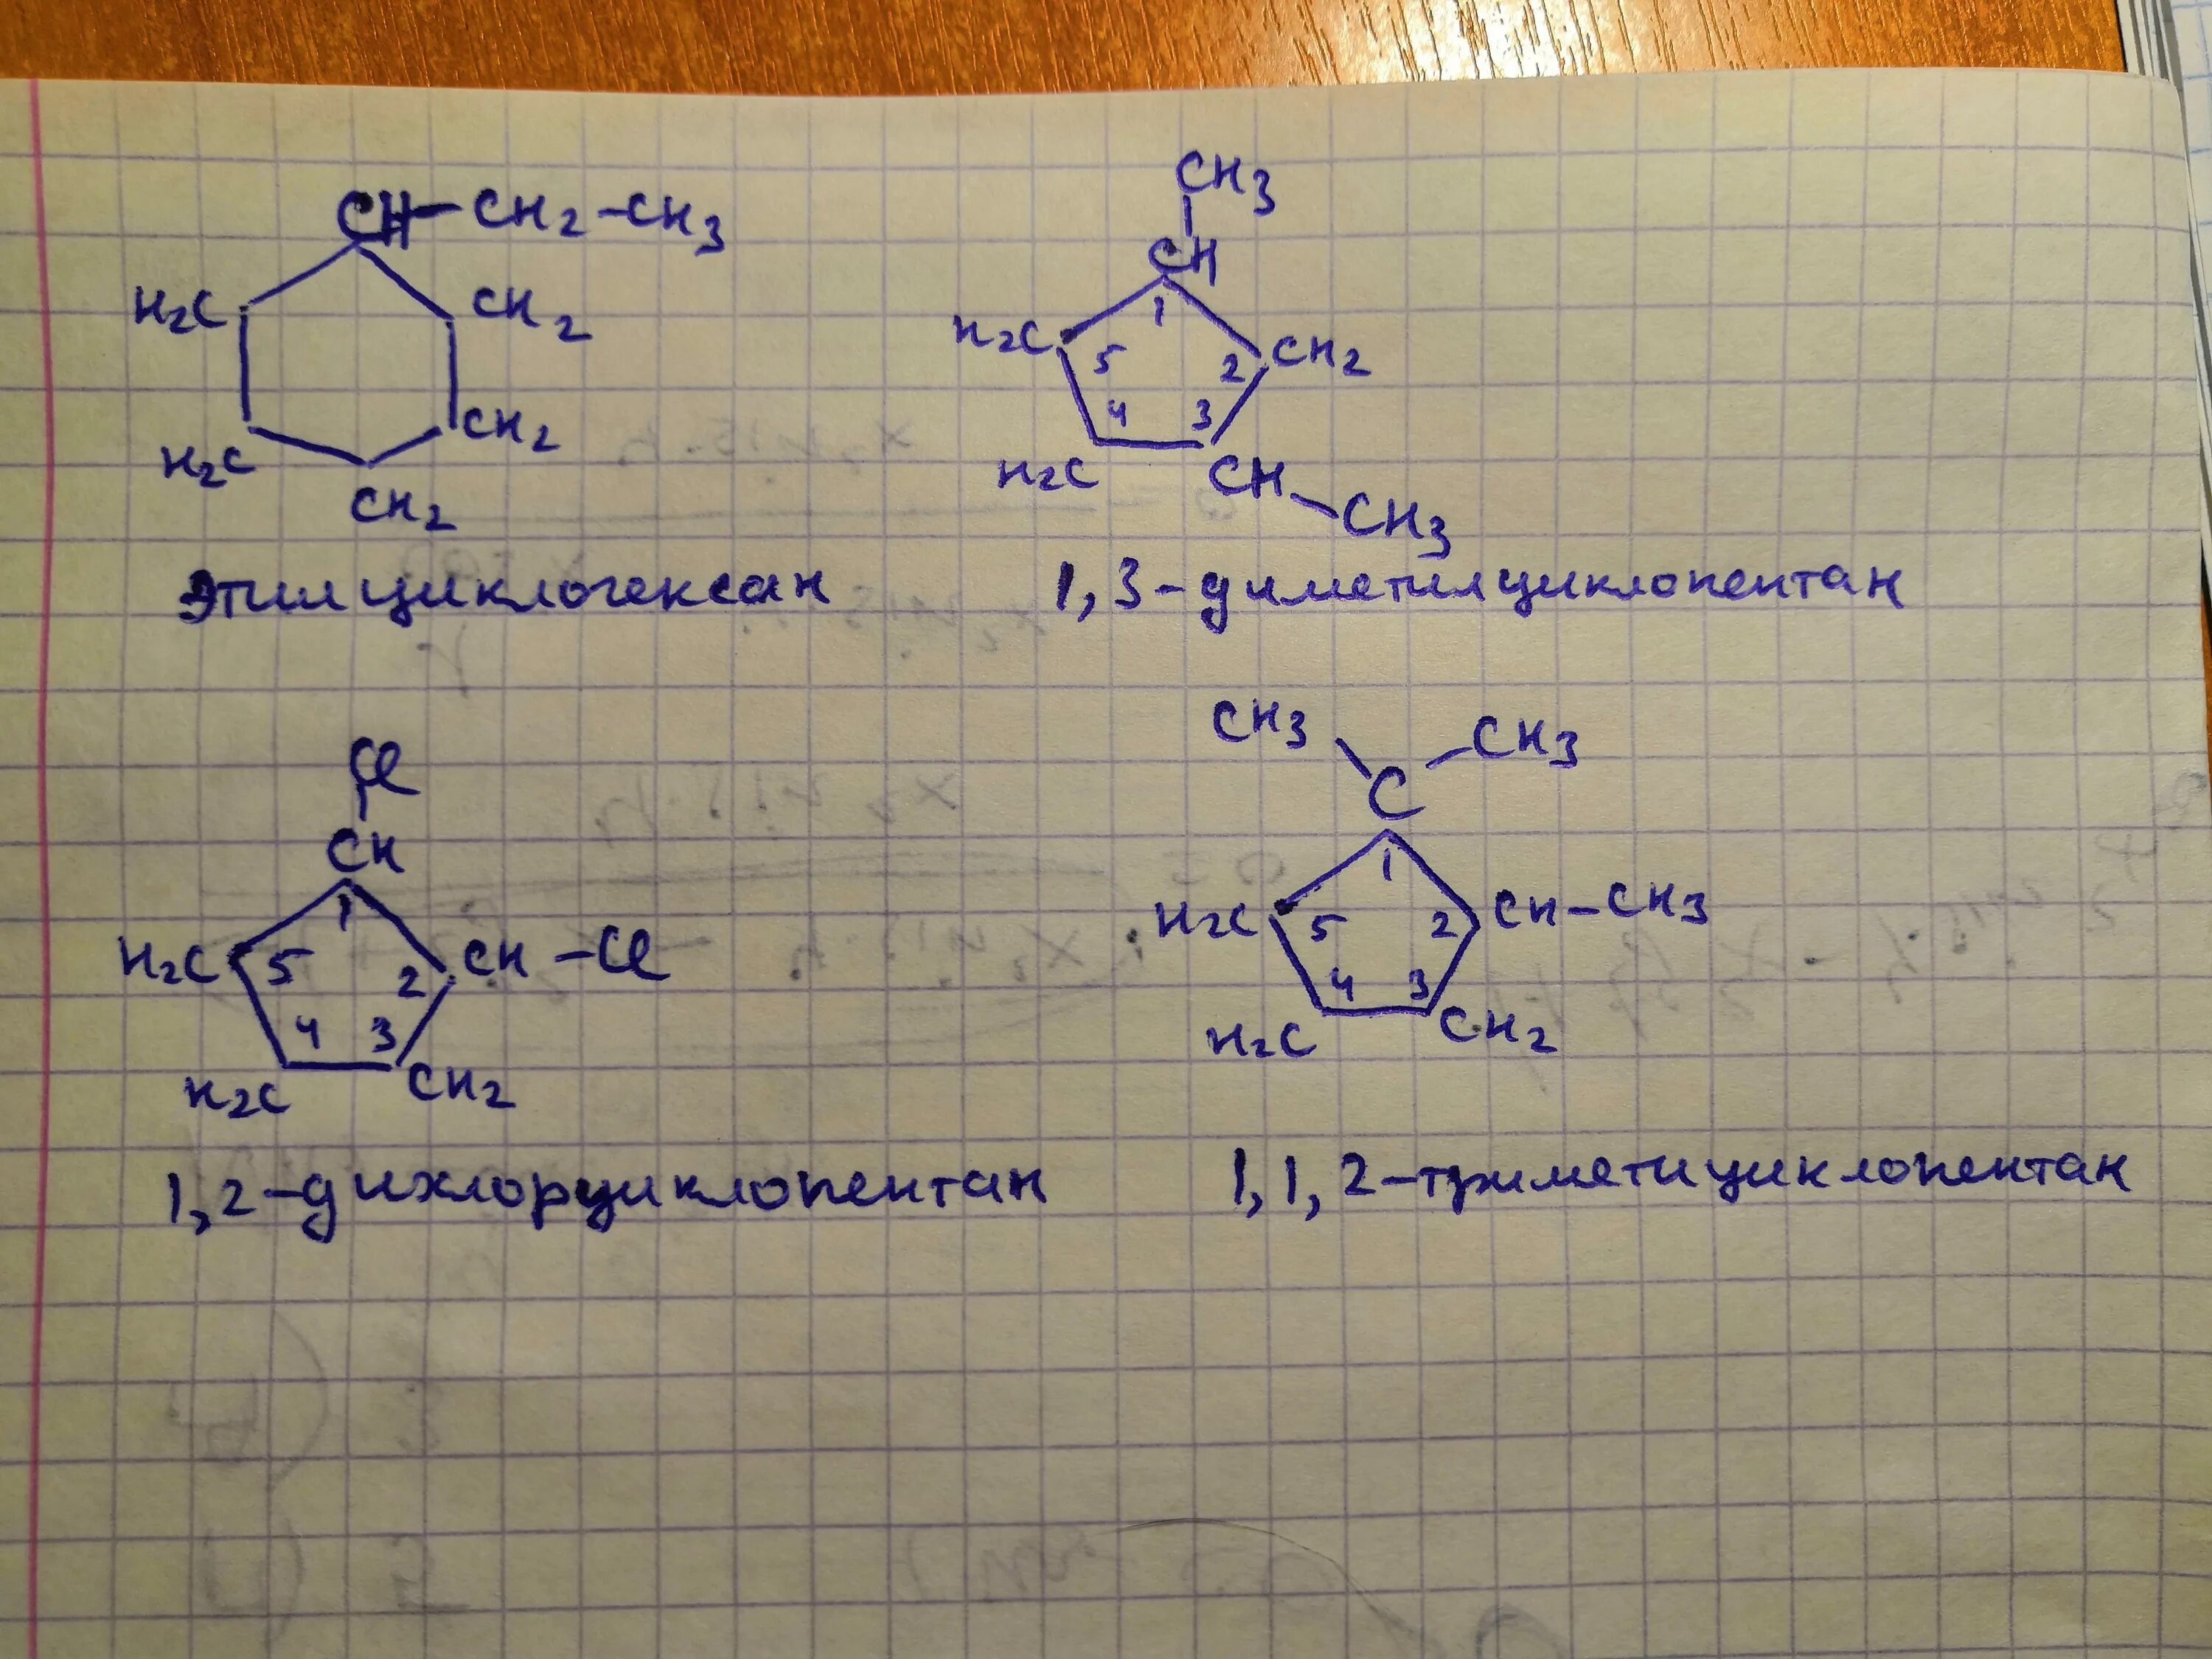 CH-CH2-CH3
H2C CH2
H2C CH2
CH2
Этилциклогексан
CH3
CH
H2C 1 CH2
5 2
4 3
H2C CH-CH3
1,3-диметилциклопентан
Cl
CH
1
H2C 5 2 CH-Cl
4 3
H2C CH2
1,2-дихлорциклопентан
CH3 CH3
C
1
H2C 5 2 CH-CH3
4 3
H2C CH2
1,1,2-триметициклопентан